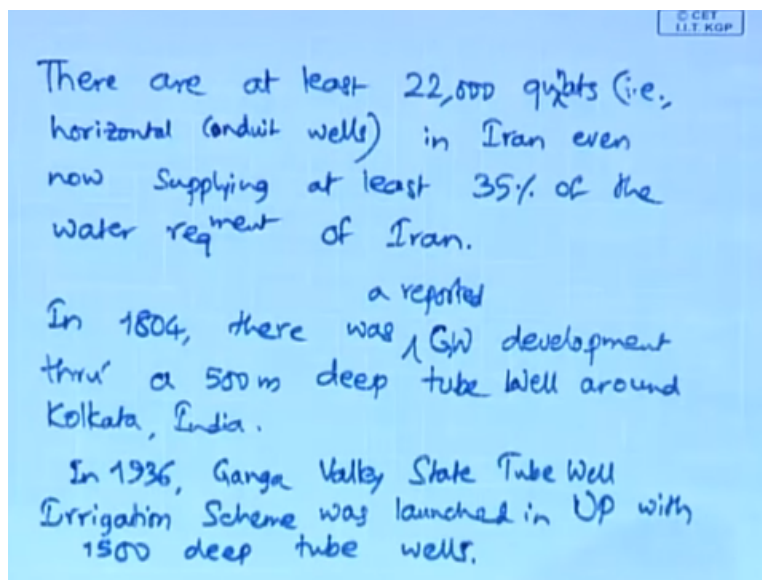 © CET
I.I.T. KGP
There are at least 22,000 (i.e.,
horizontal Conduit wells) in Iran even
now Supplying at least 35% of the
water reqment of Iran.
a reported
In 1804, there was ∧ GW development
thru' a 500m deep tube well around
Kolkata, India.
In 1936, Ganga Valley State Tube Well
Irrigation Scheme was launched in UP with
1500 deep tube wells.